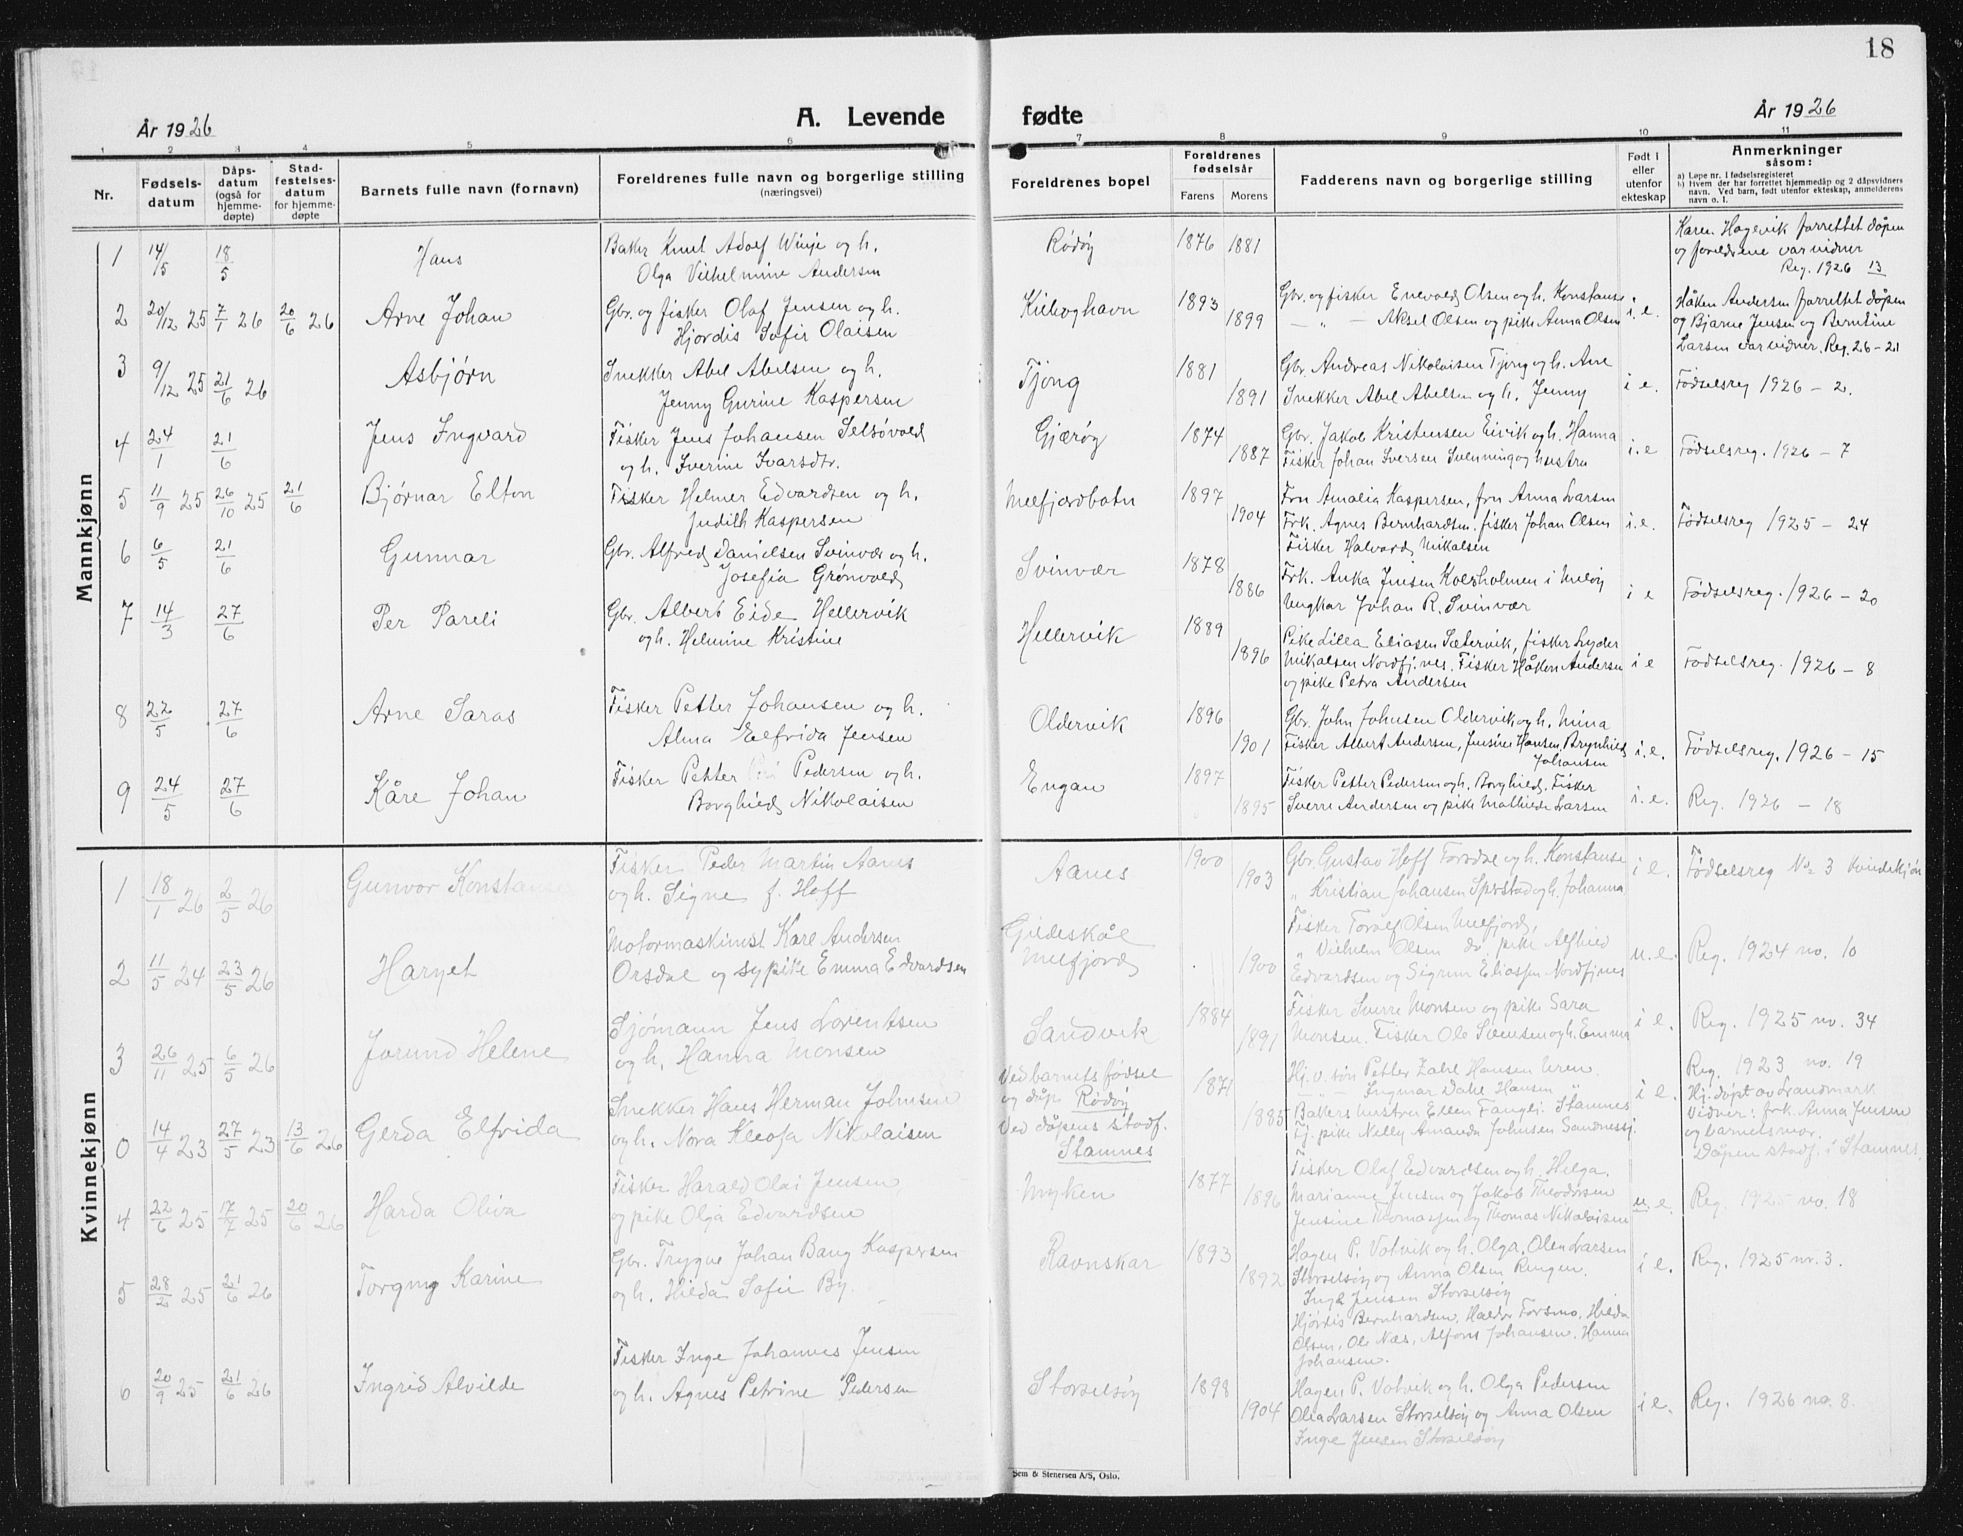 18
År 1926
A. Levende
fødte
År 1926
1 2 3 4 5 6 7 8 9 10 11
Nr.
Fødsels-
datum
Dåps-
datum
(også for
hjemme-
døpte)
Stad-
festelses-
datum
for hjemme-
døpte
Barnets fulle navn (fornavn)
Foreldrenes fulle navn og borgerlige stilling
(næringsvei)
Foreldrenes bopel
Foreldrenes
fødselsår
Farens Morens
Fadderens navn og borgerlige stilling
Født i
eller
utenfor
ekteskap
Anmerkninger
såsom:
a) Løpe nr. i fødselsregisteret
b) Hvem der har forrettet hjemmedåp og 2 dåpsvidners
navn. Ved barn, født utenfor ekteskap, anmelderens
navn o. l.
Mannkjønn
1 14/5 18/5 Hans
Baker Knut Adolf Winje og h.
Olga Vilhelmine Andersen
Rødøy 1876 1881
Karen Hagevik forrettet døpen
og foreldrene var vidner
Reg. 1926 13
2 20/12 25 7/1 26 20/6 26 Arne Johan
Gbr. og fisker Olaf Jensen og h.
Hjørdis Sofie Olaisen
Kilboghavn 1893 1899
Gbr. og fisker Enevold Olsen og h. Konstanse
— " — Aksel Olsen og pike Anna Olsen
i. e.
Håken Andersen forrettet døpen
og Bjarne Jensen og Berntine
Larsen var vidner. Reg. 26 - 21
3 9/12 25 21/6 26 Asbjørn
Snekker Abel Abelsen og h.
Jenny Gurine Kaspersen
Tjong 1881 1891
Gbr. Andreas Nikolaisen Tjong og h. Ane
Snekker Abel Abelsen og h. Jenny
i e.
Fødselsreg 1926 - 2.
4 24/1 21/6 Jens Ingvard
Fisker Jens Johansen Selsøvold
og h. Iverine Ivarsdtr.
Gjærøy 1874 1887
Gbr. Jakob Kristensen Eivik og h. Hanna
Fisker Johan Iversen Svenning og hustru
i. e
Fødselsreg. 1926 - 7
5 11/9 25 26/10 25 21/6 Bjørnar Elton
Fisker Helmer Edvardsen og h.
Judith Kaspersen
Melfjordbotn 1897 1904
Fru Amalia Kaspersen, fru Anna Larsen
Frk. Agnes Bernhardsen. fisker Johan Olsen
Fisker Halvard Mikalsen
i. e.
Fødselsreg 1925 - 24
6 6/5 21/6 Gunnar
Gbr. Alfred Danielsen Svinvær og h.
Josefia Grønvold
Svinvær 1878 1886
Frk. Anka Jensen Kolsholmen i Meløy
Ungkar Johan R. Svinvær
i e
Fødselsreg. 1926 - 20
7 14/3 27/6 Per Pareli
Gbr. Albert Eide Hellervik
og h. Helmine Kristine
Hellervik 1889 1896
Pike Lilla Eliasen Sætervik, fisker Lyder
Mikalsen Nordfj.nes. Fisker Håken Andersen
og pike Petra Andersen
i e
Fødselsreg. 1926 - 8
8 22/5 27/6 Arne Saras
Fisker Petter Johansen og h.
Alma Elfrida Jensen
Oldervik 1896 1901
Gbr. John Johnsen Oldervik og h. Mina
Fisker Albert Andersen, Jensine Hansen, Brynhild
Johansen
i. e.
Fødselsreg. 1926 - 15
9 24/5 27/6 Kåre Johan
Fisker Petter Pedersen og h.
Borghild Nikolaisen
Engan 1897 1895
Fisker Petter Pedersen og h. Borghild, Fisker
Sverre Andersen og pike Mathilde Larsen
i. e.
Reg. 1926 - 18
Kvinnekjønn
1 18/1 26 2/5 26 Gunvor Konstanse
Fisker Peder Martin Aanes
og h. Signe f. Hoff
Aanes 1900 1903
Gbr. Gustav Hoff Forsdal og h. Konstanse
" Kristian Johansen Sperstad og h. Johanna
i e.
Fødselsreg No 3 kvindekjøn
2 11/5 24 23/5 26 Haryet
Motormaskinist Karl Andersen
Orsdal og sypike Emma Edvardsen
Gildeskål
Melfjord
1900
Fisker Torolf Olsen Melfjord,
" Vilhelm Olsen do pike Alfhild
Edvardsen og Sigrun Eliassen Nordfjnes
u. e.
Reg. 1924 no. 10
3 26/11 25 6/5 26 Jorund Helene
Sjømann Jens Lorentsen
og h. Hanna Monsen
Sandvik 1884 1891
Fisker Sverre Monsen og pike Sara
Monsen. Fisker Ole Svensen og h. Emma
i e.
Reg. 1925 no. 34
0 14/4 23 27/5 23 13/6 26 Gerda Elfrida
Snekker Hans Herman Johnsen
og h. Nora Kleofa Nikolaisen
Ved barnets fødsel
og dåp Rødøy
Ved dåpens stadf.
Stamnes
1871 1885
Hj. v. søn Petter Zahl Hansen Uren.
— " — Ingmar Dahl Hansen "
Bakers hustru Ellen Fangli Stamnes
Tj. pike Nelly Amanda Johnsen Sandnessj.
i e.
Reg. 1923 no. 19
Hj. døpt av Landmark
Vidner: frk. Anna Jensen
og barnets mor.
Dåpen stadf. i Stamnes.
4 22/6 25 17/7 25 20/6 26 Harda Oliva
Fisker Harald Olai Jensen
og pike Olga Edvardsen
Myken 1877 1896
Fisker Olaf Edvardsen og h. Helga.
Marianne Jensen og Jakob Theodorsen
Jensine Thomassen og Thomas Nikolaisen
u. e.
Reg. 1925 no. 18
5 28/2 25 21/6 26 Torgny Karine
Gbr. Trygve Johan Bang Kaspersen
og h. Hilda Sofie By.
Ravnskar 1893 1892
Hagen P. Votvik og h. Olga, Olea Larsen
Storselsøy og Anna Olsen Ringen.
Inge Jensen Storselsøy
Hjørdis Bernhardsen, Haldor Forsmo, Hilda
Olsen, Ole Næs, Alfons Johansen, Hanna
Johansen.
i e.
Reg. 1925 nr. 3.
6 20/9 25 21/6 26 Ingrid Alvilde
Fisker Inge Johannes Jensen
og h. Agnes Petrine Pedersen
Storselsøy 1898 1904
Hagen P. Votvik og h. Olga Pedersen
Olea Larsen Storselsøy og Anna Olsen
Inge Jensen Storselsøy
i e.
Reg. 1926 no. 8.
Sem & Stenersen A/S, Oslo.